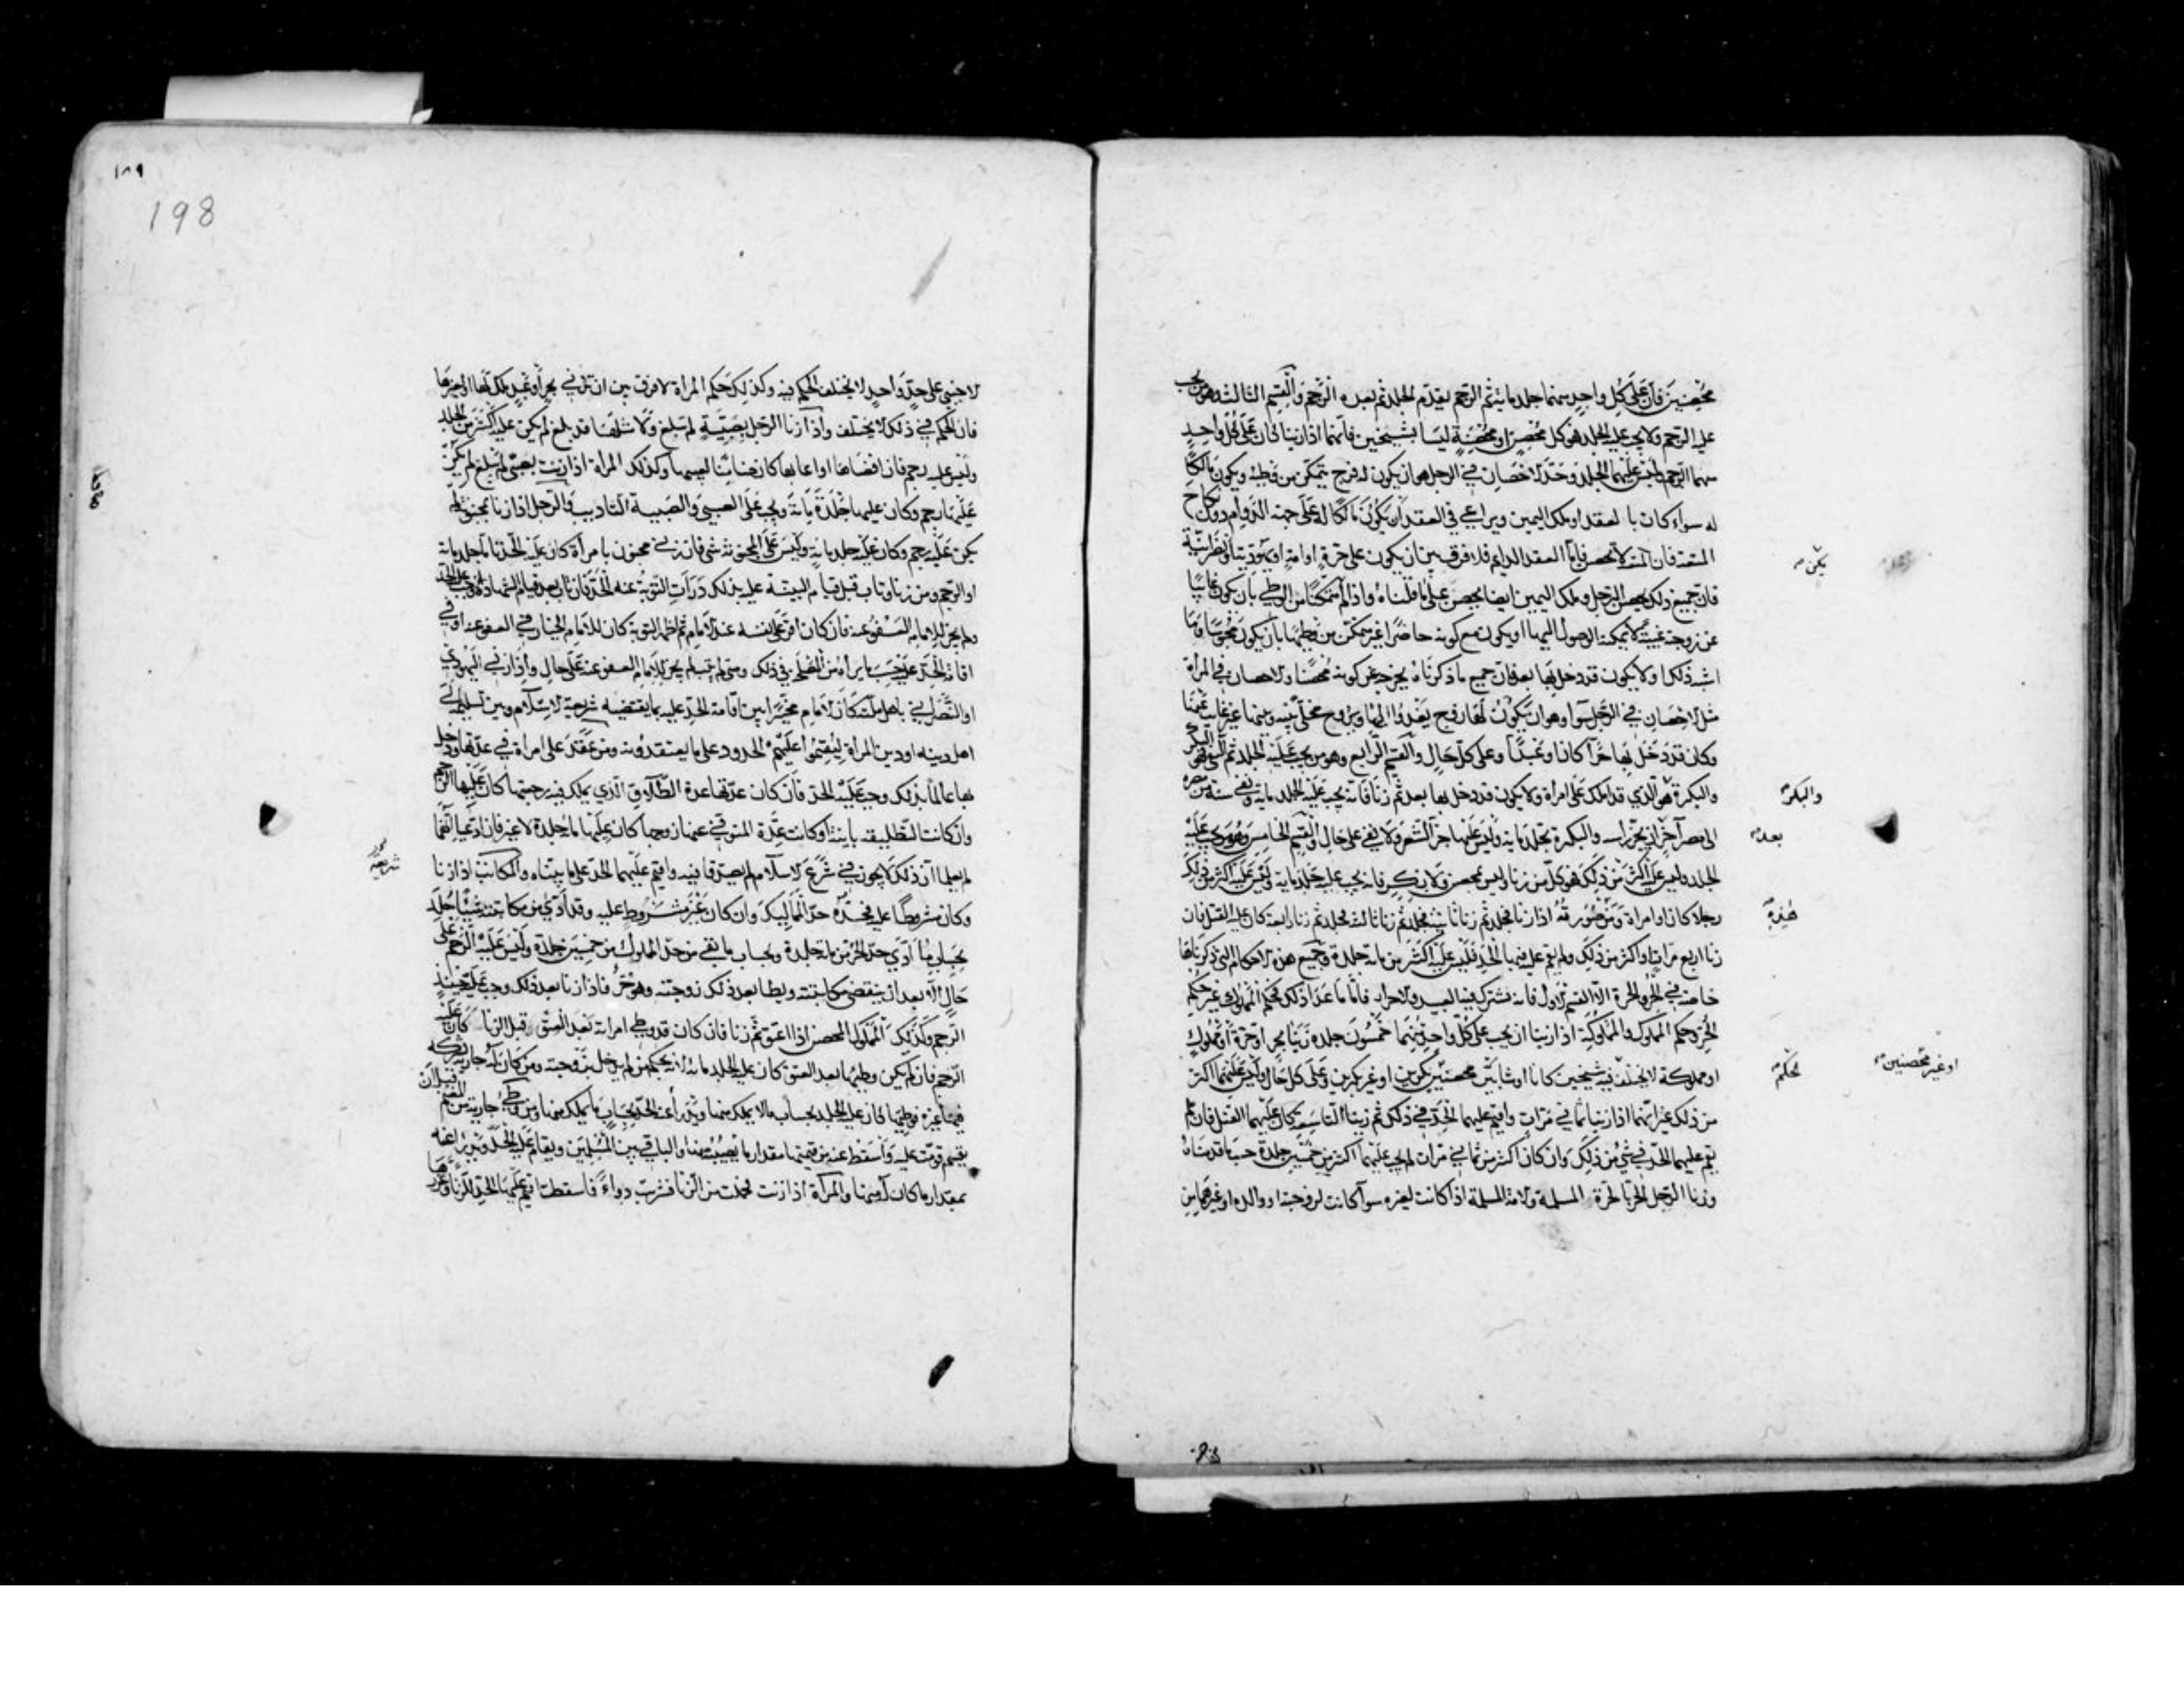 محصنين فان على كل واحد منهما جلد مائة ثم الرجم يقدم الجلد ثم بعده الرجم والقسم الثالث وهو من يجب
عليه الرجم ولا يجب عليه الجلد فهو كل محصن او محصنة ليسا بشيخين فانهما اذا زنيا كان على كل واحد
منهما الرجم وليس عليهما الجلد وحد الاحصان في الرجل هو ان يكون له فرج يتمكن من وطيه ويكون مالكا
له سواء كان بالعقد او ملك اليمين ويراعي في العقد ان يكون مالكا له على جهة الدوام دون نكاح
المتعة فان المتعة لا تحصن فاما العقد الدايم فلا فرق بين ان يكون على حرة او امة او يهودية او نصرانية
فان جميع ذلك يحصن الرجل وملك اليمين ايضا يحصن على ما قلناه واذا لم متمكنا من الوطي بان يكون غايبا
عن زوجته غيبة لا يمكنه الوصول اليها او يكون مع كونه حاضرا غير متمكن من وطيها بان يكون محبوسا وما
اشبه ذلك او لا يكون قد دخل بها بعد فان جميع ما ذكرناه يخرجه عن كونه محصنا والاحصان في المراة
مثل الاحصان في الرجل سوا وهو ان يكون لها زوج يغدوا اليها ويروح مخلى بينه وبينها غير غايب عنها
وكان قد دخل بها حرا كان او عبدا وعلى كل حال والقسم الرابع وهو من يجب عليه الجلد ثم النفي فهو البكر
والبكرة هو الذي قد املك على امراة ولا يكون قد دخل بها بعد ثم زنا فانه يجب عليه الجلد مائة ونفي سنة من مصره
الى مصر آخر ان يجز راسه والبكرة تجلد مائة وليس عليها جز الشعر ولا نفي على حال والقسم الخامس وهو من يجب عليه
الجلد وليس عليه اكثر من ذلك فهو كل من زنا وليس بمحصن ولا بكر فانه يجب عليه جلد مائة وليس عليه اكثر من ذلك
رجلا كان او امراة ومن صورته اذا زنا فجلد ثم زنا ثانية فجلد ثم زنا ثالثة فجلد ثم زنا رابعة كان عليه القتل فان
زنا اربع مرات او اكثر من ذلك ولم يقم عليه فيها الحد فليس عليه اكثر من مائة جلدة وجميع هذه الاحكام التي ذكرناها
خاصة في الحر والحرة الا القسم الاول فانه يشترك فيه العبيد والاحرار فاما ما عدا ذلك فحكم المملوك غير حكم
الحر وحكم المملوك والمملوكة اذا زنيا ان يجب على كل واحد منهما خمسون جلدة زنيا بحر او حرة او مملوك
او مملوكة لا يختلف فيه شيخين كانا او شابين محصنين بكرين او غير بكرين وعلى كل حال وليس عليهما اكثر
من ذلك غير انهما اذا زنيا ثماني مرات واقيم عليهما الحد في ذلك ثم زنيا التاسعة كان عليهما القتل فان لم
يقم عليهما الحد في شي من ذلك وان كان اكثر من ثماني مرات لم يجب عليهما اكثر من خمسين جلدة حسبما قدمناه
وزنا الرجل الحر بالحرة المسلمة والامة المسلمة اذا كانت لغيره سوآ كانت لزوجته او والده او غيرهما من
يكن
والبكر
بعد
هذه
الحكم
او غير محصنين
١٨٩
198
الاجنبي على حد واحد لا يختلف الحكم فيه وكذلك حكم المراة لا فرق بين ان تزني بحر او بعبد ملك لها او لغيرها
فان الحكم في ذلك لا يختلف واذا زنا الرجل بصبية لم تبلغ ولا مثلها قد بلغ لم يكن عليه اكثر من الجلد
وليس عليه رجم فان افضاها او اعابها كان ضامنا لعيبها وكذلك المراة اذا زنت بصبي لم يبلغ لم يكن
عليها رجم وكان عليها جلدة مائة ويجب على الصبي والصبية التاديب والرجل اذا زنا بمجنونة لم
يكن عليه رجم وكان عليه جلد مائة وليس على المجنونة شي فان زنى مجنون بامرأة كان عليه الحد تاما جلد مائة
او الرجم ومن زنا وتاب قبل قيام البينة عليه بذلك درات التوبة عنه الحد فان تاب بعد قيام الشهادة وجب عليه الحد
ولم يجز للامام العفو عنه فان كان اقر على نفسه عند الامام ثم اظهر التوبة كان للامام الخيار في العفو عنه او في
اقامة الحد عليه حسب ما يراه من المصلحة في ذلك ومتى لم يتب لم يجز للامام العفو عنه على حال واذا زنى اليهودي
او النصراني باهل ملته كان الامام مخيرا بين اقامة الحد عليه بما يقتضيه شريعة الاسلام وبين تسليمه الى
اهل دينه او دين المراة ليقيموا عليهم الحدود على ما يعتقدونه ومن عقد على امراة في عدتها ودخل
بها عالما بذلك وجب عليه الحد فان كان عدتها عدة الطلاق الذي يملك فيه رجعتها كان عليها الرجم
وان كانت التطليقة باينة او كانت عدة المتوفي عنها زوجها كان عليها مائة جلدة لا غير فان ادعيا انهما
لم يعلما ان ذلك لا يجوز في شرع الاسلام لم يصدقا فيه واقيم عليهما الحد على ما بيناه والمكاتب اذا زنا
وكان مشروطا عليه فحده حد المماليك وان كان غير مشروط عليه وقد ادى من مكاتبته شيئا جلد
بحساب ما ادى حد الحر من مائة جلدة وبحساب ما بقي من حد المملوك من خمسين جلدة وليس عليه الرجم على
حال الا بعد ان ينقضي مكاتبته ويطا بعد ذلك زوجته وهو حر فاذا زنا بعد ذلك وجب عليه حينئذ
الرجم وكذلك المملوك المحصن اذا اعتق ثم زنا فان كان قد وطي امراته بعد العتق قبل الزنا كان عليه
الرجم فان لم يكن وطيها بعد العتق كان عليه الجلد مائة لانه بحكم من لم يدخل بزوجته ومن كان له جارية يشركه
فيها غيره فوطيها كان عليه الجلد بحساب ما لا يملك منها ويدرأ عنه الحد بحساب ما يملك منها ومن وطي جارية من المغنم قبل ان
يقسم قومت عليه واسقط عنه من قيمتها مقدار ما يصيبه منها والباقي بين المسلمين ويقام عليه الحد ويدرا عنه
بمقدار ما كان له منها والمرأة اذا زنت فحملت من الزنا فشربت دواء فاسقطت اقيم عليها الحد للزنا وعزرها
شريعة